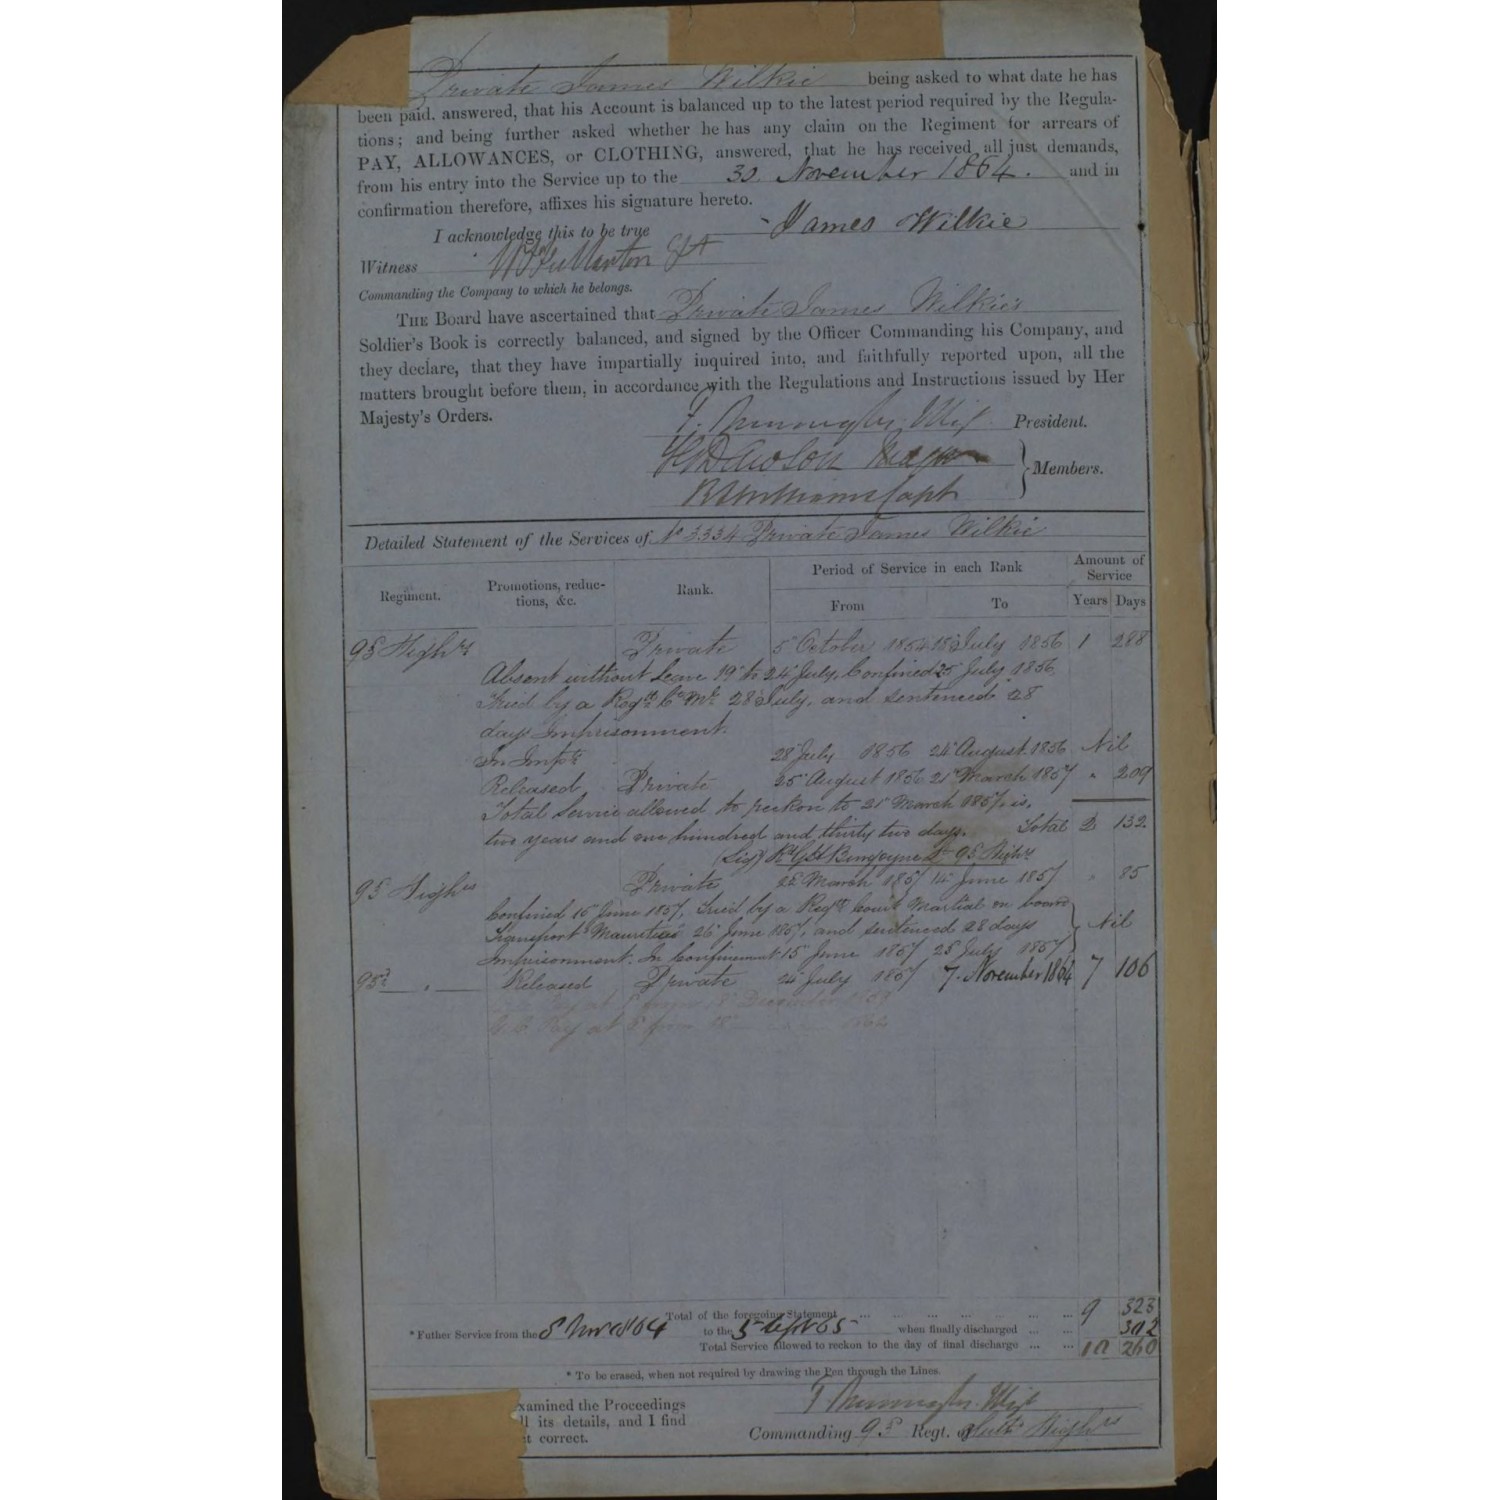 Private James Wilkie being asked to what date he has
been paid, answered, that his Account is balanced up to the latest period required by the Regula-
tions; and being further asked whether he has any claim on the Regiment for arrears of
PAY, ALLOWANCES, or CLOTHING, answered, that he has received all just demands,
from his entry into the Service up to the 30 November 1864. and in
confirmation therefore, affixes his signature hereto.
I acknowledge this to be true James Wilkie
Witness
Commanding the Company to which he belongs.
THE Board have ascertained that Private James Wilkie's
Soldier's Book is correctly balanced, and signed by the Officer Commanding his Company, and
they declare, that they have impartially inquired into, and faithfully reported upon, all the
matters brought before them, in accordance with the Regulations and Instructions issued by Her
Majesty's Orders.
President.
Members.
Capt
Detailed Statement of the Services of No 3334 Private James Wilkie
Regiment. Promotions, reduc-tions, &c. Rank. Period of Service in each Rank Amount of Service
From To Years Days
Private 5 October 1854 18 July 1856 1 288
Absent without leave 19 to 24 July, Confined 25 July 1856
Tried by a Regtl Ct Ml 28 July, and sentenced 28
days Imprisonment.
28 July 1856 24 August 1856 Nil
Released Private 25 August 1856 21 March 1857 " 209
Total Service allowed to reckon to 21 March 1857, is,
two years and one hundred and thirty two days. Total 2 132
Private 22 March 1857 14 June 1857 " 85
Confined 15 June 1857, Tried by a Regtl Court Martial on board
Transport Mauritius 26 June 1857, and sentenced 28 days Nil
Imprisonment. In confinement 15 June 1857 23 July 1857
Released Private 24 July 1857 7 November 1864 7 106
Total of the foregoing Statement ... 9 323
* Futher Service from the 8 Nov 1864 to the 5 Sept 65 when finally discharged ... 302
Total Service allowed to reckon to the day of final discharge ... 10 260
* To be erased, when not required by drawing the Pen through the Lines.
xamined the Proceedings
ll its details, and I find
t correct.
Commanding 95 Regt. of